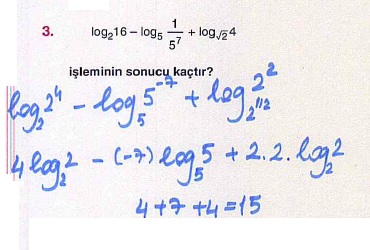 3. log₂16 – log₅ 1/5⁷ + log_√2 4
işleminin sonucu kaçtır?
log₂2⁴ – log₅5⁻⁷ + log_2^1/2 2²
4log₂2 – (-7)log₅5 + 2.2.log₂2
4+7+4=15